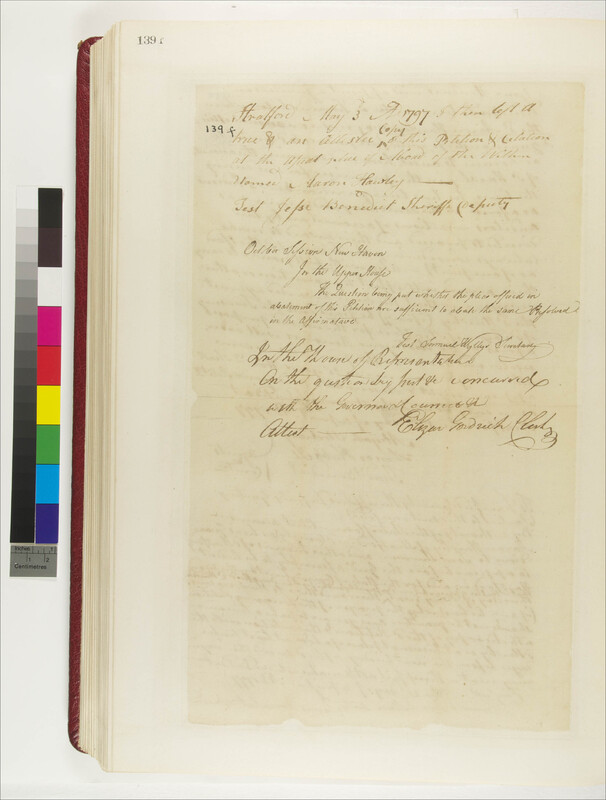 139 f
Stratford May 3d AD 1797 then left a
139 f
true & an attested Copy of this Petition & Citation
at the usual place of abode of the within
Named Aaron Hawley
Test Jesse Benedict Sheriffs Deputy
October Session New Haven
In the Upper House
The Question being put whether the pleas offered in
abatement of this Petition are sufficient to abate the same Resolved
in the affirmative
Test Samuel Wyllys Secretary
In the House of Representatives
On the question being put &c concurred
with the Governor & Council &c
Attest Elizur Goodrich Clerk
Inches 1
1 2
Centimetres